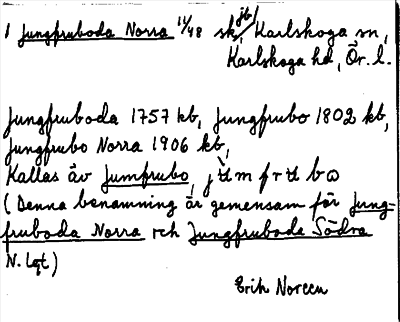 1 Jungfruboda Norra 11/48 sk/jb, Karlskoga sn,
Karlskoga hd, Ör. l.
Jungfruboda 1757 kb, Jungfrubo 1802 kb,
Jungfrubo Norra 1906 kb,
Kallas äv Jumfrubo,
(Denna benämning är gemensam för Jung-
fruboda Norra och Jungfruboda Södra
N. lgt)
Erik Noreen